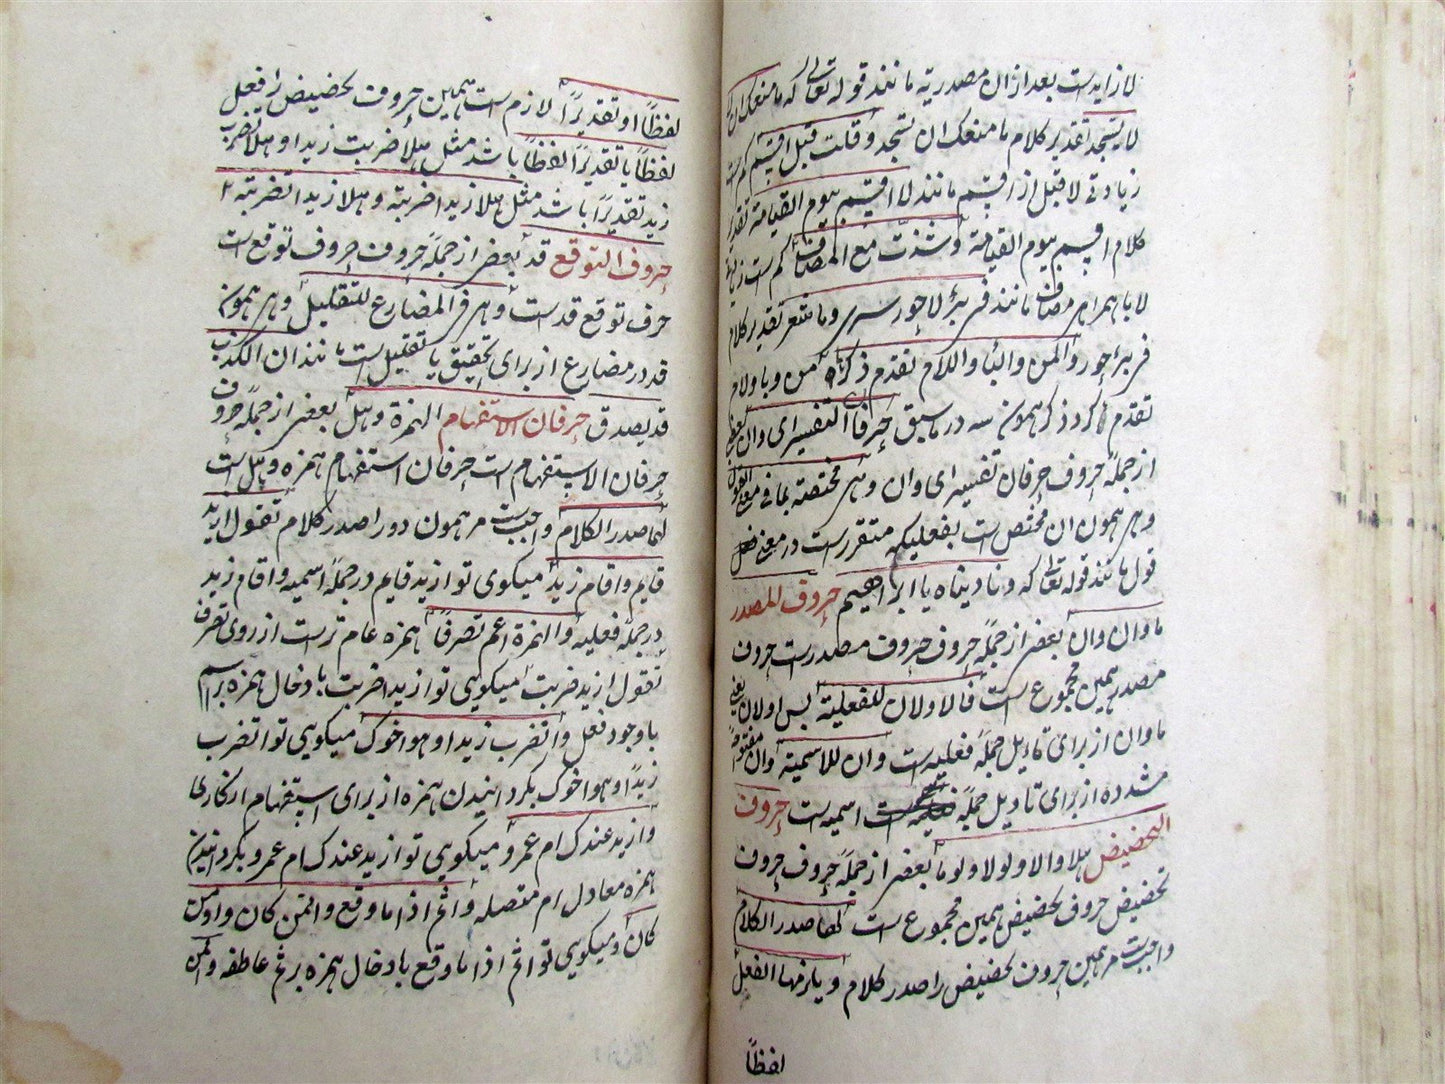 لا زایدست بعد از ان مصدریه مانند قوله تعالی که ما منعک ان
لا تسجد تقدیر کلام ما منعک ان تسجد وقلت قبل اقسم کم است
زیادتی لا قبل از اقسم مانند لا اقسم بیوم القیامة تقدیر
کلام اقسم بیوم القیامة وشذت مع المضاف کم است زیادتی
لا با همراهی مضاف مانند فی بئر لا حور سری وما شعر تقدیر کلام
فی بئر حور والمن والبا واللام تقدم ذکرها من وبا ولام
تقدم کرد ذکر همون سه در ما سبق حرفا التفسیر ای وان بعض
از جملهٔ حروف حرفان تفسیر ای وان وهی مختصة بما فی معنی القول
وهی همون ان مختص است بفعلیکه متقررست در معنی
قول مانند قوله تعالی که ونادیناه یا ابراهیم حروف المصدر
ما وان وانّ بعضی از جملهٔ حروف حروف مصدرست حروف
مصدر همین مجموع است فالاولان للفعلیة پس اولان یعنی
ما وان از برای تاویل جملهٔ فعلیه است وان للاسمیة وان مفتوحهٔ
مشدده از برای تاویل جملهٔ اسمیه است حروف
التحضیض هلا والا ولولا ولوما بعضی از جملهٔ حروف حروف
تحضیض حروف تحضیض همین مجموع است لها صدر الکلام
واجبست مر همین حروف تحضیض را صدر کلام ویلزمها الفعل
لفظاً
لفظاً او تقدیراً لازم است همین حروف تحضیض را فعل
لفظاً یا تقدیراً لفظاً باشد مثل هلا ضربت زیدا وهلا تضرب
زید تقدیراً باشد مثل هلا زیدا ضربته وهلا زیدا تضربه
حروف التوقع قد بعضی از جملهٔ حروف حروف توقع است
حرف توقع قد است وهی فی المضارع للتقلیل وهی همون
قد در مضارع از برای تحقیق یا تقلیل است مانند ان الکذوب
قد یصدق حرفان الاستفهام الهمزة وهل بعضی از جملهٔ حروف
حرفان الاستفهام است حرفان استفهام همزه وهل است
لهما صدر الکلام واجبست مر همون دو را صدر کلام تقول ازید
قایم واقام زید میکوی تو ازید قایم در جملهٔ اسمیه واقام زید
در جملهٔ فعلیه والهمزة اعم تصرفاً همزه عام ترست از روی تصرف
تقول ازید ضربت میکویی تو ازید اضربت با دخال همزه بر اسم
با وجود فعل واتضرب زیدا وهو اخوک میکویی تو اتضرب
زیداً وهو اخوک بکردانیدن همزه از برای استفهام انکاری
وازید عندک ام عمرو میکویی تو ازید عندک ام عمرو بکردانیدن
همزه معادل ام متصله واثم اذا ما وقع وافمن کان واومن
کان ومیکویی تو اثم اذا ما وقع با دخال همزه بر ثم عاطفه وافمن